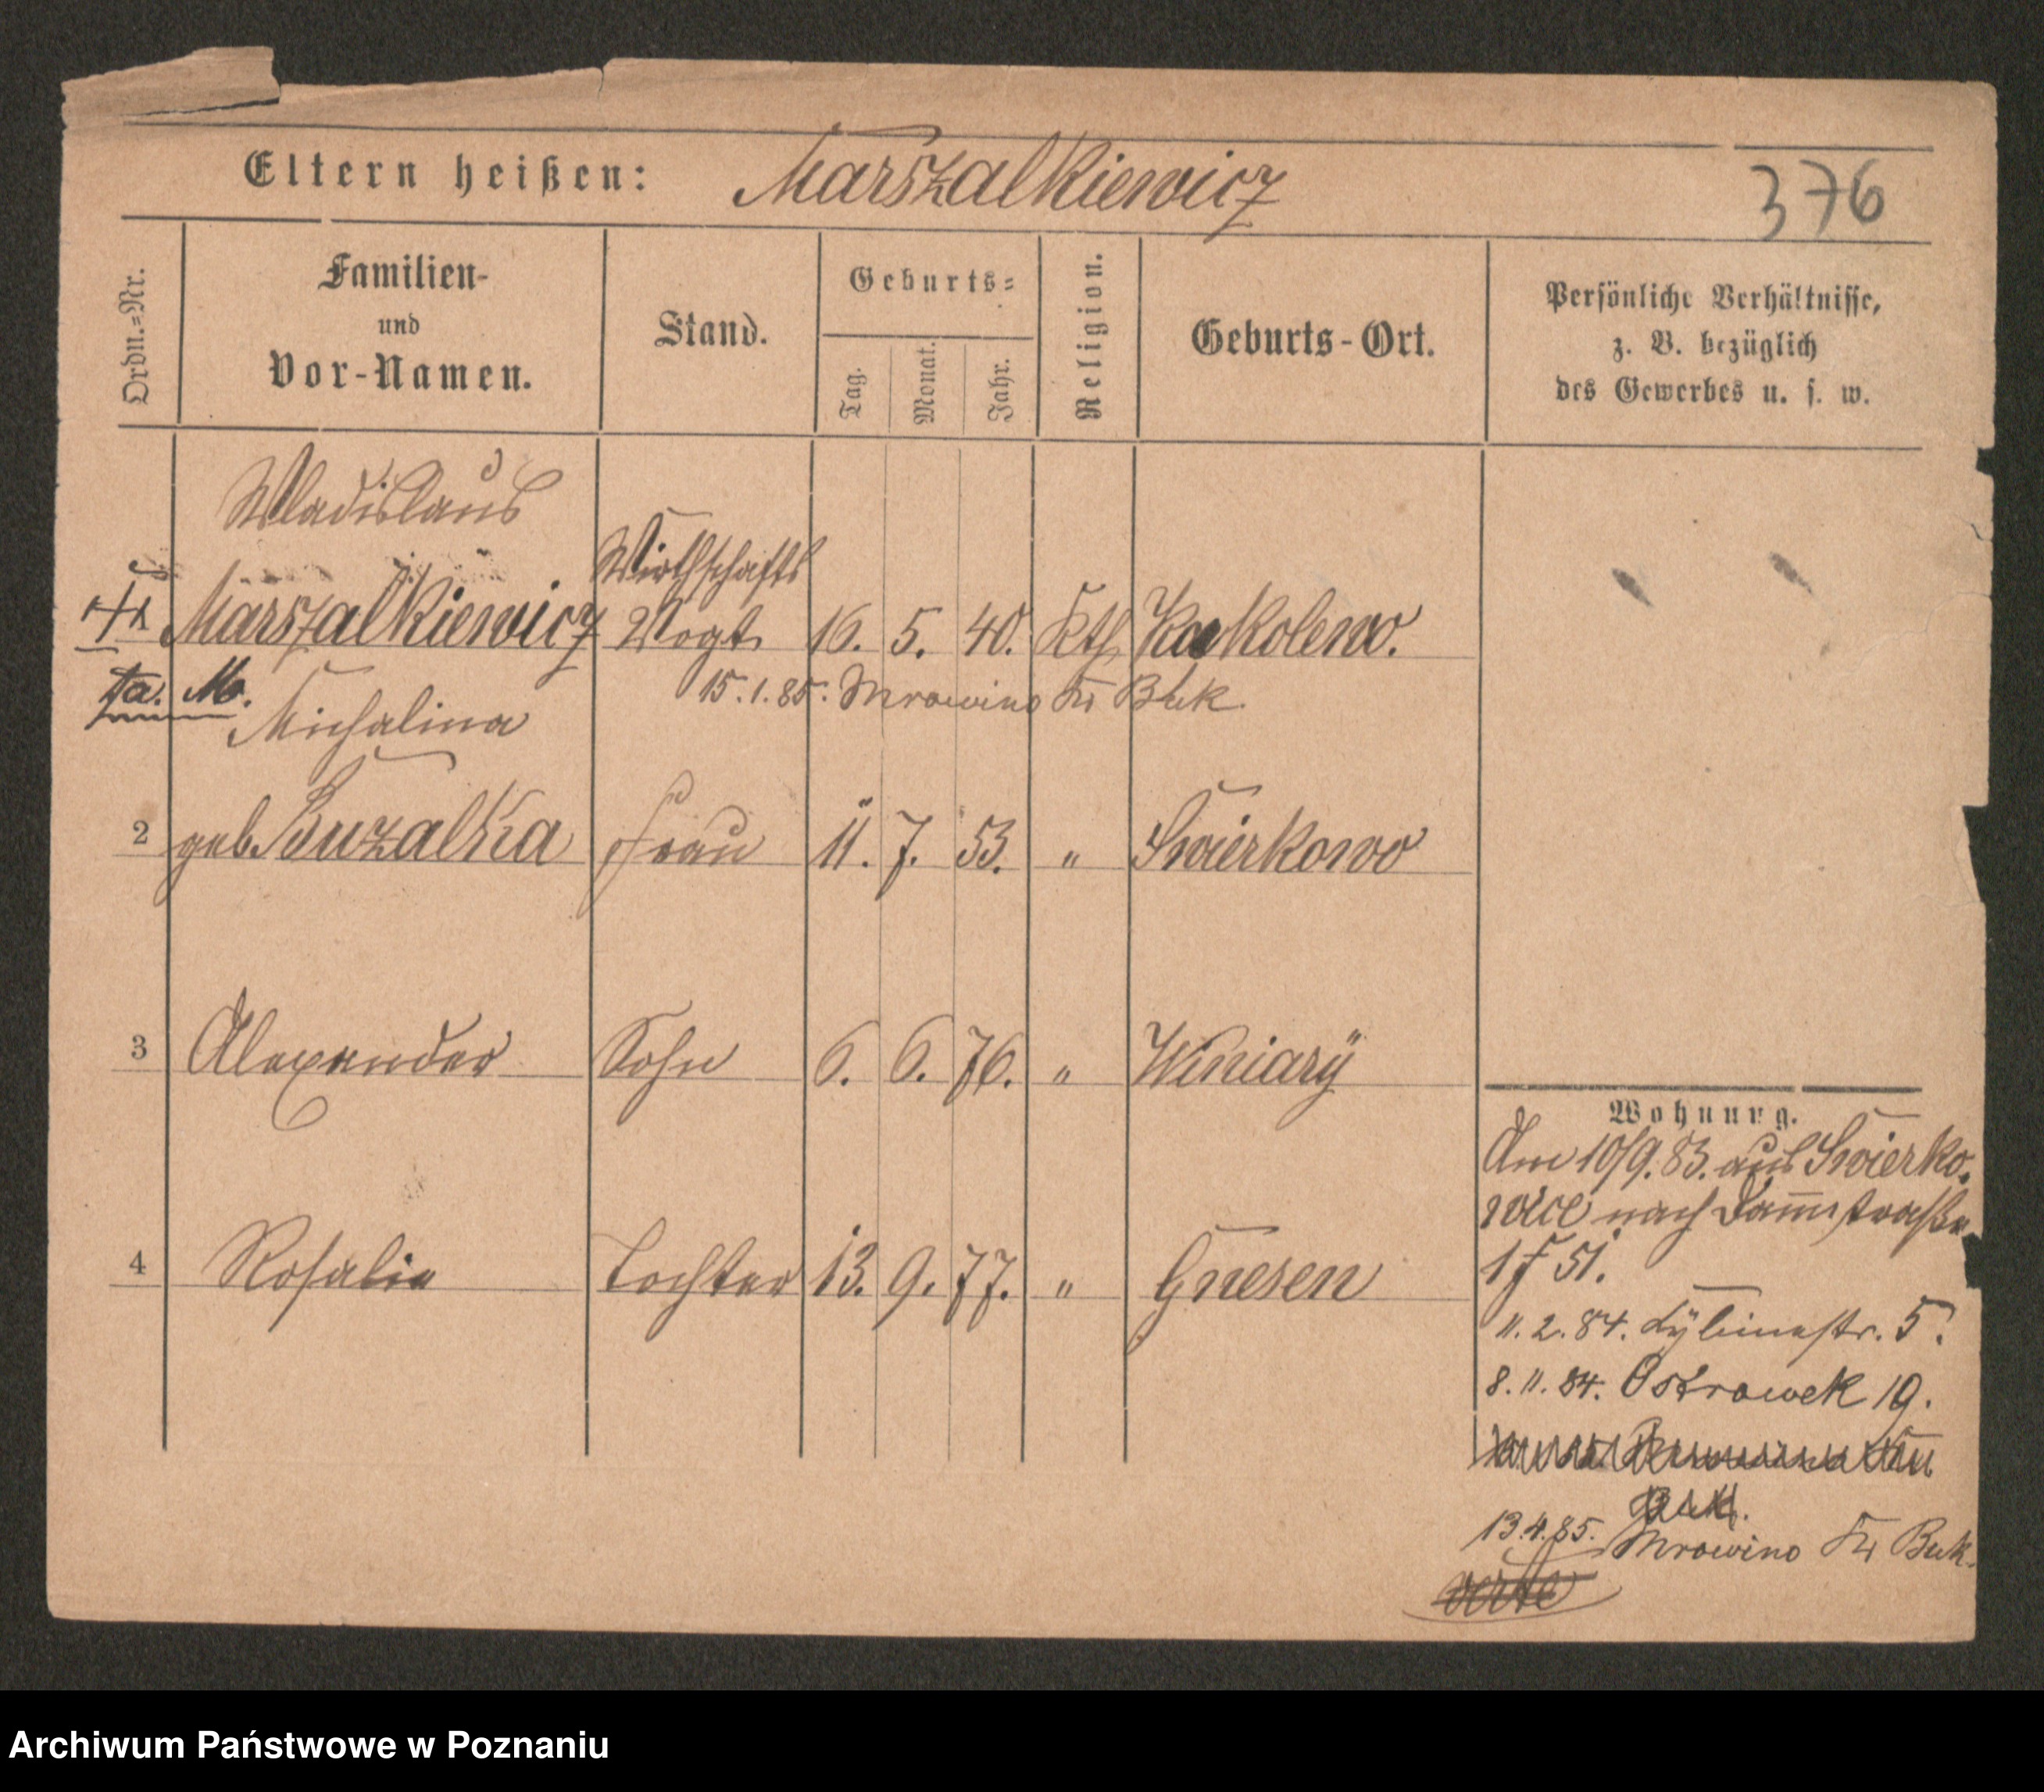 Eltern heißen: Marszalkiewicz 376
Ordn.=Nr.
Familien-
und
Vor-Namen.
Stand.
Geburts=
Tag.
Monat.
Jahr.
Religion.
Geburts-Ort.
Persönliche Verhältnisse,
z. B. bezüglich
des Gewerbes u. s. w.
Wladislaus
Marszalkiewicz Wirthschafts Vogt 16. 5. 40. Kth Kakolewo.
15.1.85. Mrowino Kr Buk.
Michalina
2 geb. Buzalka Frau 11. 7. 53. " Swierkowo
3 Alexander Sohn 6. 6. 76. " Winiarÿ
4 Rosalie Tochter 13. 9. 77. " Gnesen
Wohnung.
Am 10/9.83. aus Swierko-
wice nach Dammstraße
11.2.84. Cÿbinastr. 5.
8.11.84. Ostrowek 19.
Buk.
13.4.85. Mrowino Kr Buk.
verte
Archiwum Państwowe w Poznaniu